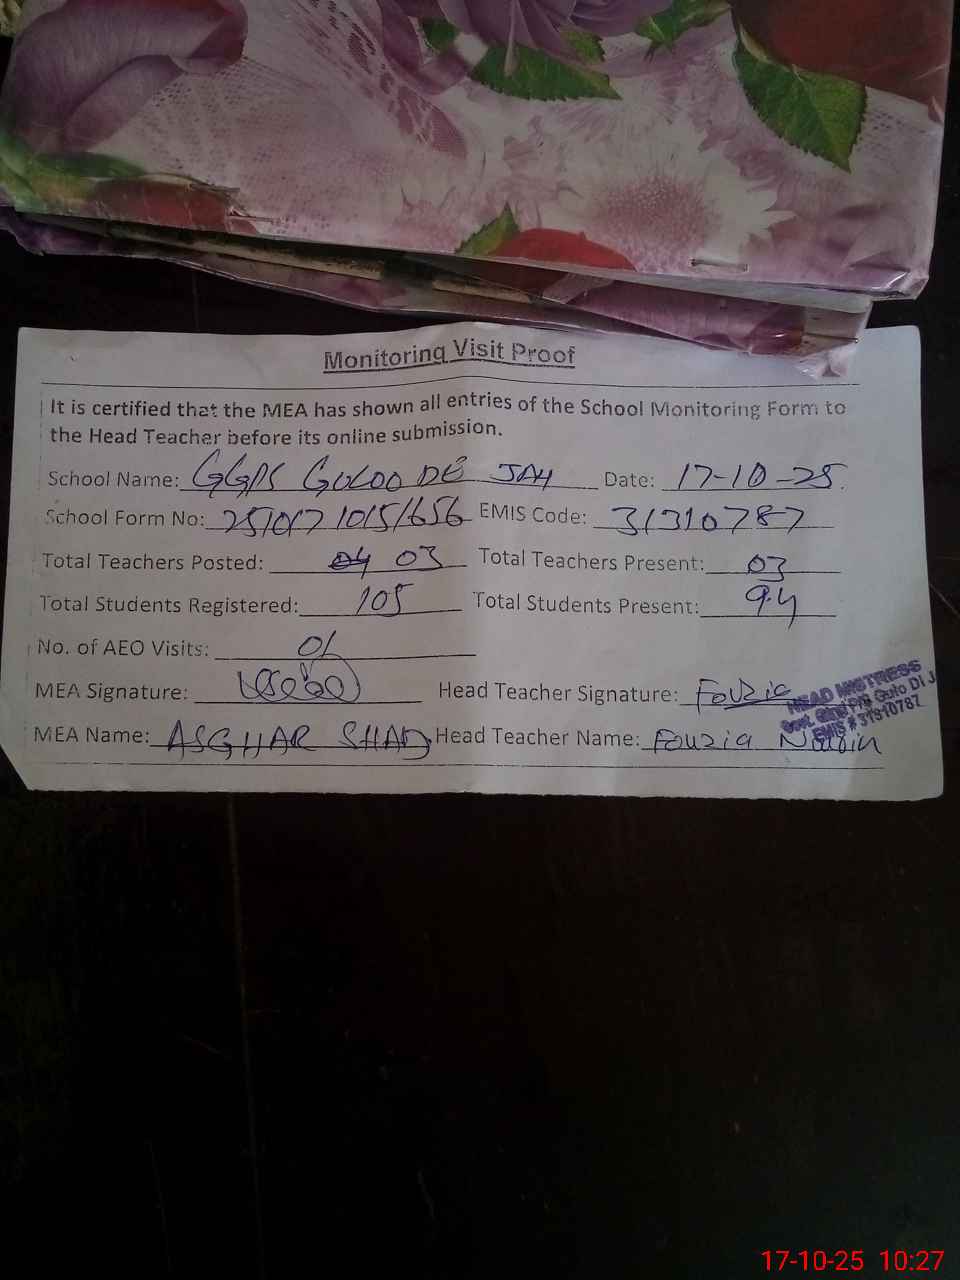 Monitoring Visit Proof
It is certified that the MEA has shown all entries of the School Monitoring Form to
the Head Teacher before its online submission.
School Name: GGPS GULOO DE JAH Date: 17-10-25
School Form No: EMIS Code: 31310787
Total Teachers Posted: 03 Total Teachers Present: 03
Total Students Registered: 105 Total Students Present: 94
No. of AEO Visits: 01
MEA Signature: Head Teacher Signature: Fouzia
HEAD MISTRESS
Govt. P/S Gulo Di J
EMIS # 31310787
MEA Name: ASGHAR SHAD Head Teacher Name: Fouzia
17-10-25 10:27